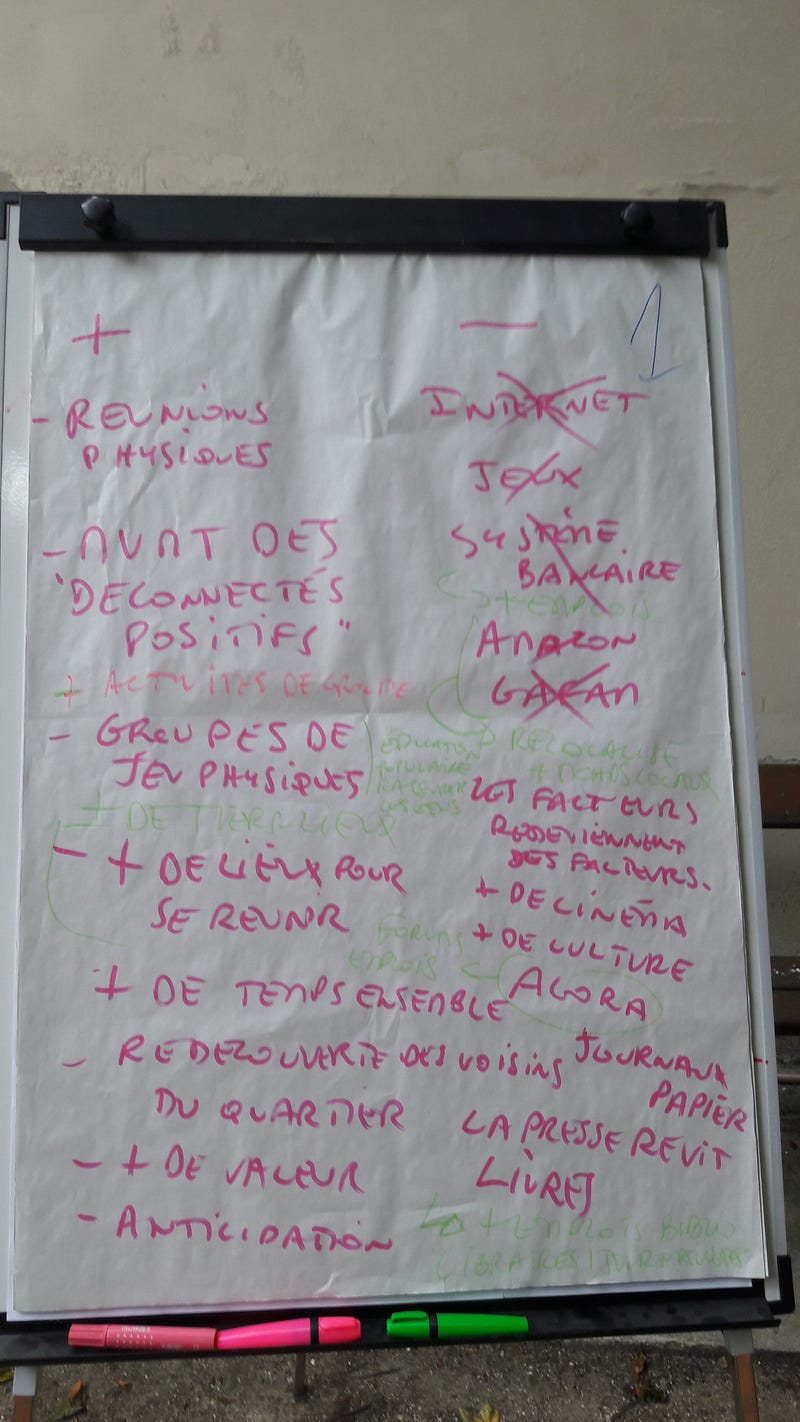 +
- REUNIONS
PHYSIQUES
- AVANT DES
"DECONNECTÉS
POSITIFS"
+ ACTIVITES DE GROUPE
- GROUPES DE
JEU PHYSIQUES
EDUCATION
POPULAIRE
+ DE TIERS-LIEUX
- + DE LIEUX POUR
SE REUNIR
+ DE TEMPS ENSEMBLE
- REDECOUVERTE DES VOISINS
DU QUARTIER
- + DE VALEUR
- ANTICIPATION
—
1
INTERNET
JEUX
SYSTÈME
BANCAIRE
+ EMPLOIS
AMAZON
GAFAM
RELOCALISE
+ ACHATS LOCAUX
LES FACTEURS
REDEVIENNENT
DES FACTEURS.
+ DE CINEMA
+ DE CULTURE
FORUMS
EMPLOIS
AGORA
JOURNAUX
PAPIER
LA PRESSE REVIT
LIVRES
+ EMPLOIS BIBLIO
LIBRAIRES